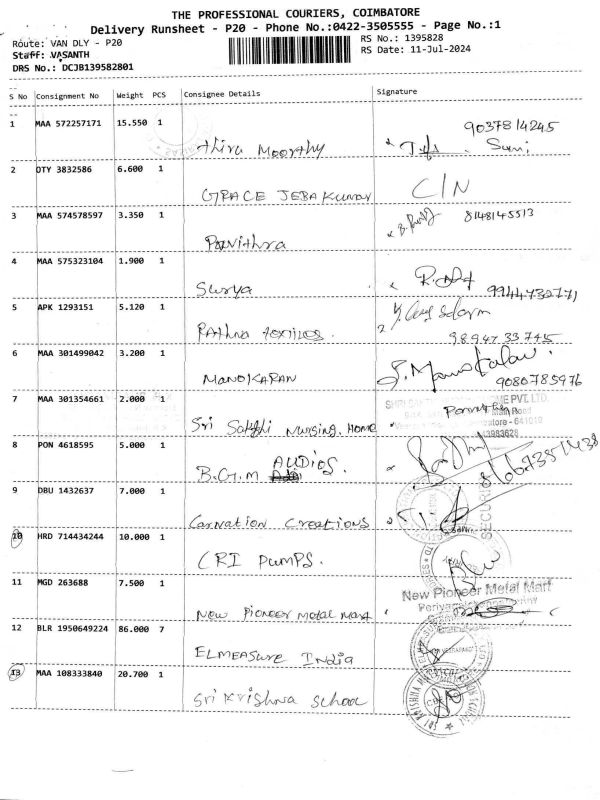 THE PROFESSIONAL COURIERS, COIMBATORE
Delivery Runsheet - P20 - Phone No.:0422-3505555 - Page No.:1
Route: VAN DLY - P20 RS No.: 1395828
Staff: VASANTH RS Date: 11-Jul-2024
DRS No.: DCJB139582801
S No Consignment No Weight PCS Consignee Details Signature
1 MAA 572257171 15.550 1 9037814245
Thiru Moorthy
2 OTY 3832586 6.600 1 C/N
GRACE JEBA Kumar
3 MAA 574578597 3.350 1 8148145513
Pavithra
4 MAA 575323104 1.900 1
Surya 9944730771
5 APK 1293151 5.120 1
RAthna textiles. 9894733745
6 MAA 301499042 3.200 1
MANOKARAN 9080785976
7 MAA 301354661 2.000 1 PVT. LTD.
Sri Sakthi Nursing. Home Main Road
8 PON 4618595 5.000 1
B.G.M AUDIOS.
9 DBU 1432637 7.000 1
Carnation Creations SECURI
10 HRD 714434244 10.000 1
CRI PUMPS.
11 MGD 263688 7.500 1 New Pioneer Metal Mart
New Pioneer Metal Mart
12 BLR 1950649224 86.000 7
ELMEASURE India
13 MAA 108333840 20.700 1
Sri Krishna School